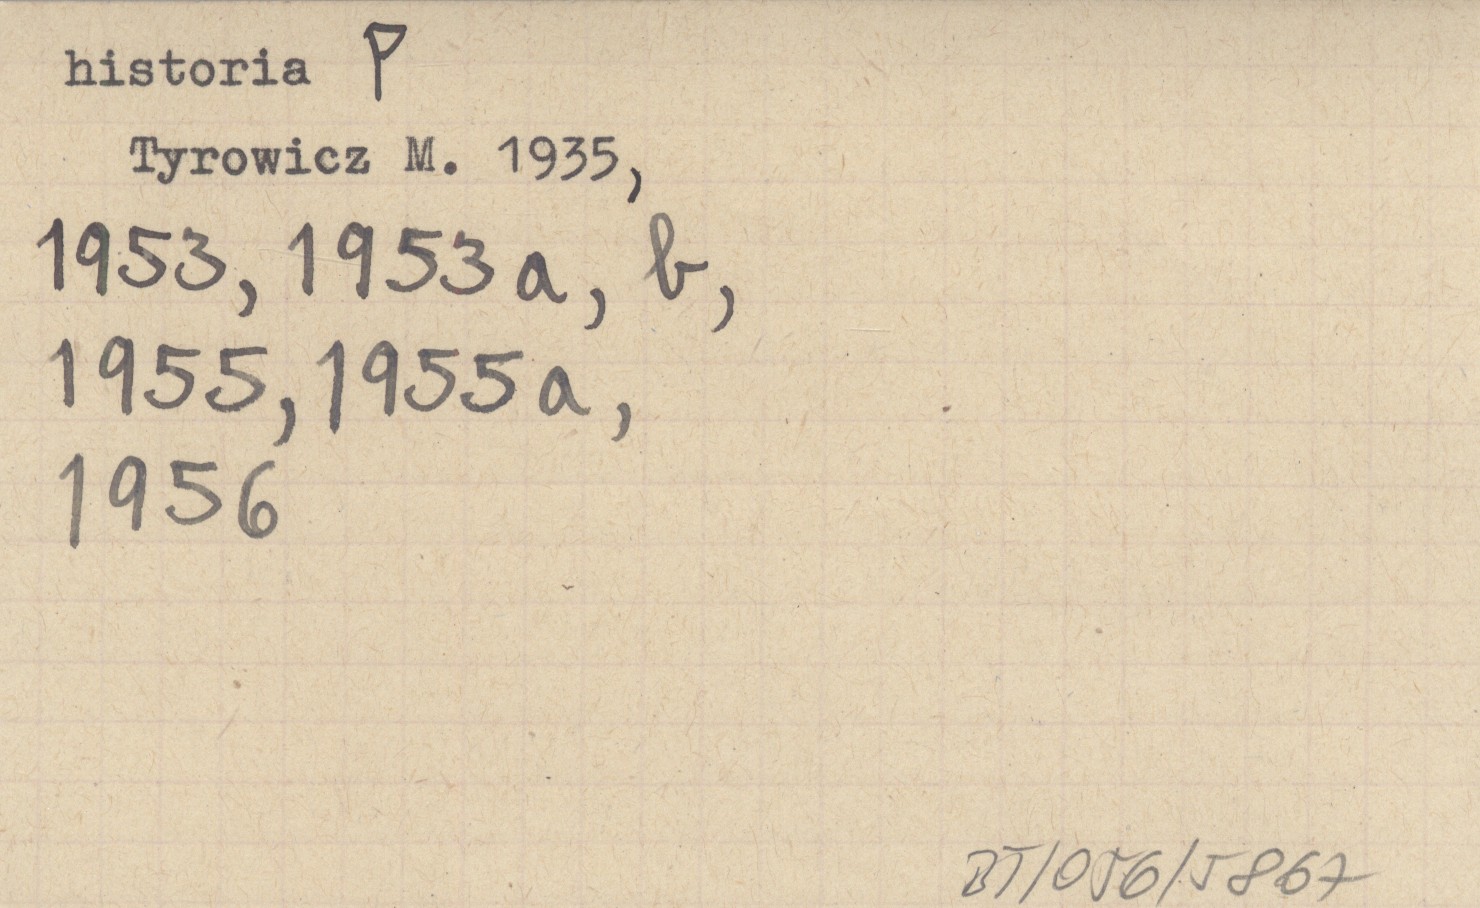 historia P
Tyrowicz M. 1935,
1953, 1953a, b,
1955, 1955a,
1956
BT/056/5867